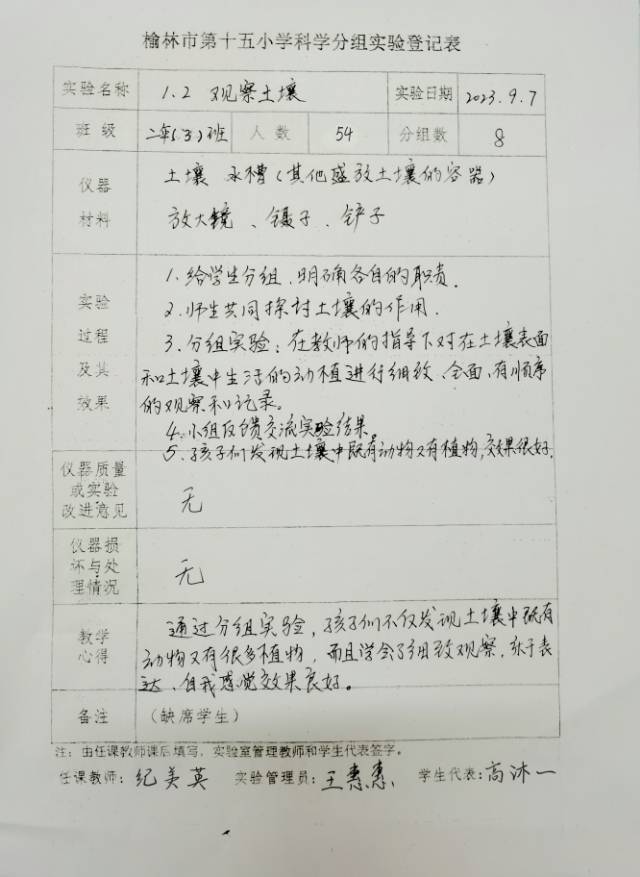 榆林市第十五小学科学分组实验登记表
实验名称 1.2 观察土壤 实验日期 2023.9.7
班级 二年(3)班 人数 54 分组数 8
仪器材料 土壤 水槽(其他盛放土壤的容器)
放大镜、镊子、铲子
实验过程及其效果 1.给学生分组,明确各自的职责.
2.师生共同探讨土壤的作用.
3.分组实验:在教师的指导下对在土壤表面
和土壤中生活的动植进行细致、全面、有顺序
的观察和记录。
4.小组反馈交流实验结果。
5.孩子们发现土壤中既有动物又有植物,效果很好.
仪器质量或实验改进意见 无
仪器损坏与处理情况 无
教学心得 通过分组实验,孩子们不仅发现土壤中既有
动物又有很多植物,而且学会了细致观察,乐于表
达,自我感觉效果良好。
备注 (缺席学生)
注:由任课教师课后填写,实验室管理教师和学生代表签字。
任课教师:纪美英 实验管理员:王惠惠 学生代表:高沐一